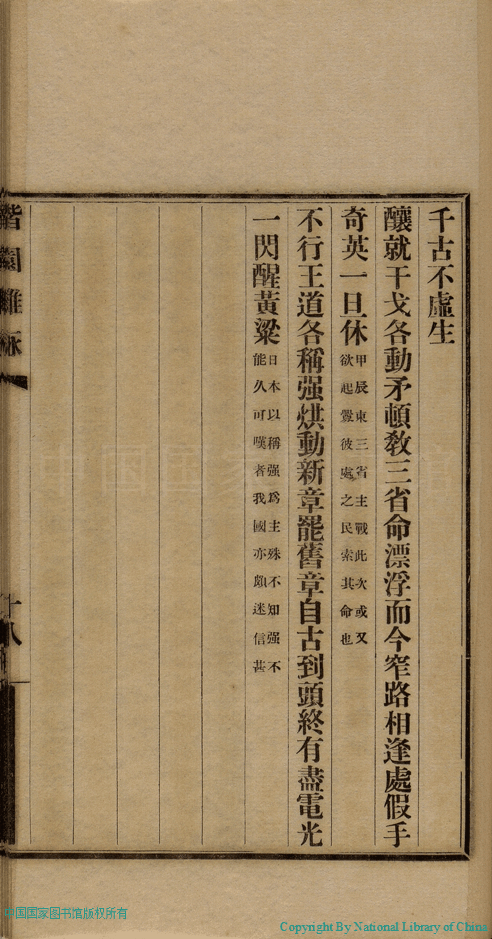 千古不虛生
釀就干戈各動矛頓教三省命漂浮而今窄路相逢處假手
奇英一旦休甲辰東三省主戰此次或又欲起釁彼處之民索其命也
不行王道各稱强烘動新章罷舊章自古到頭終有盡電光
一閃醒黃粱日本以稱强爲主殊不知强不能久可嘆者我國亦頗迷信甚
十八
国国家图书馆版权所有
Copyright By National Library of China